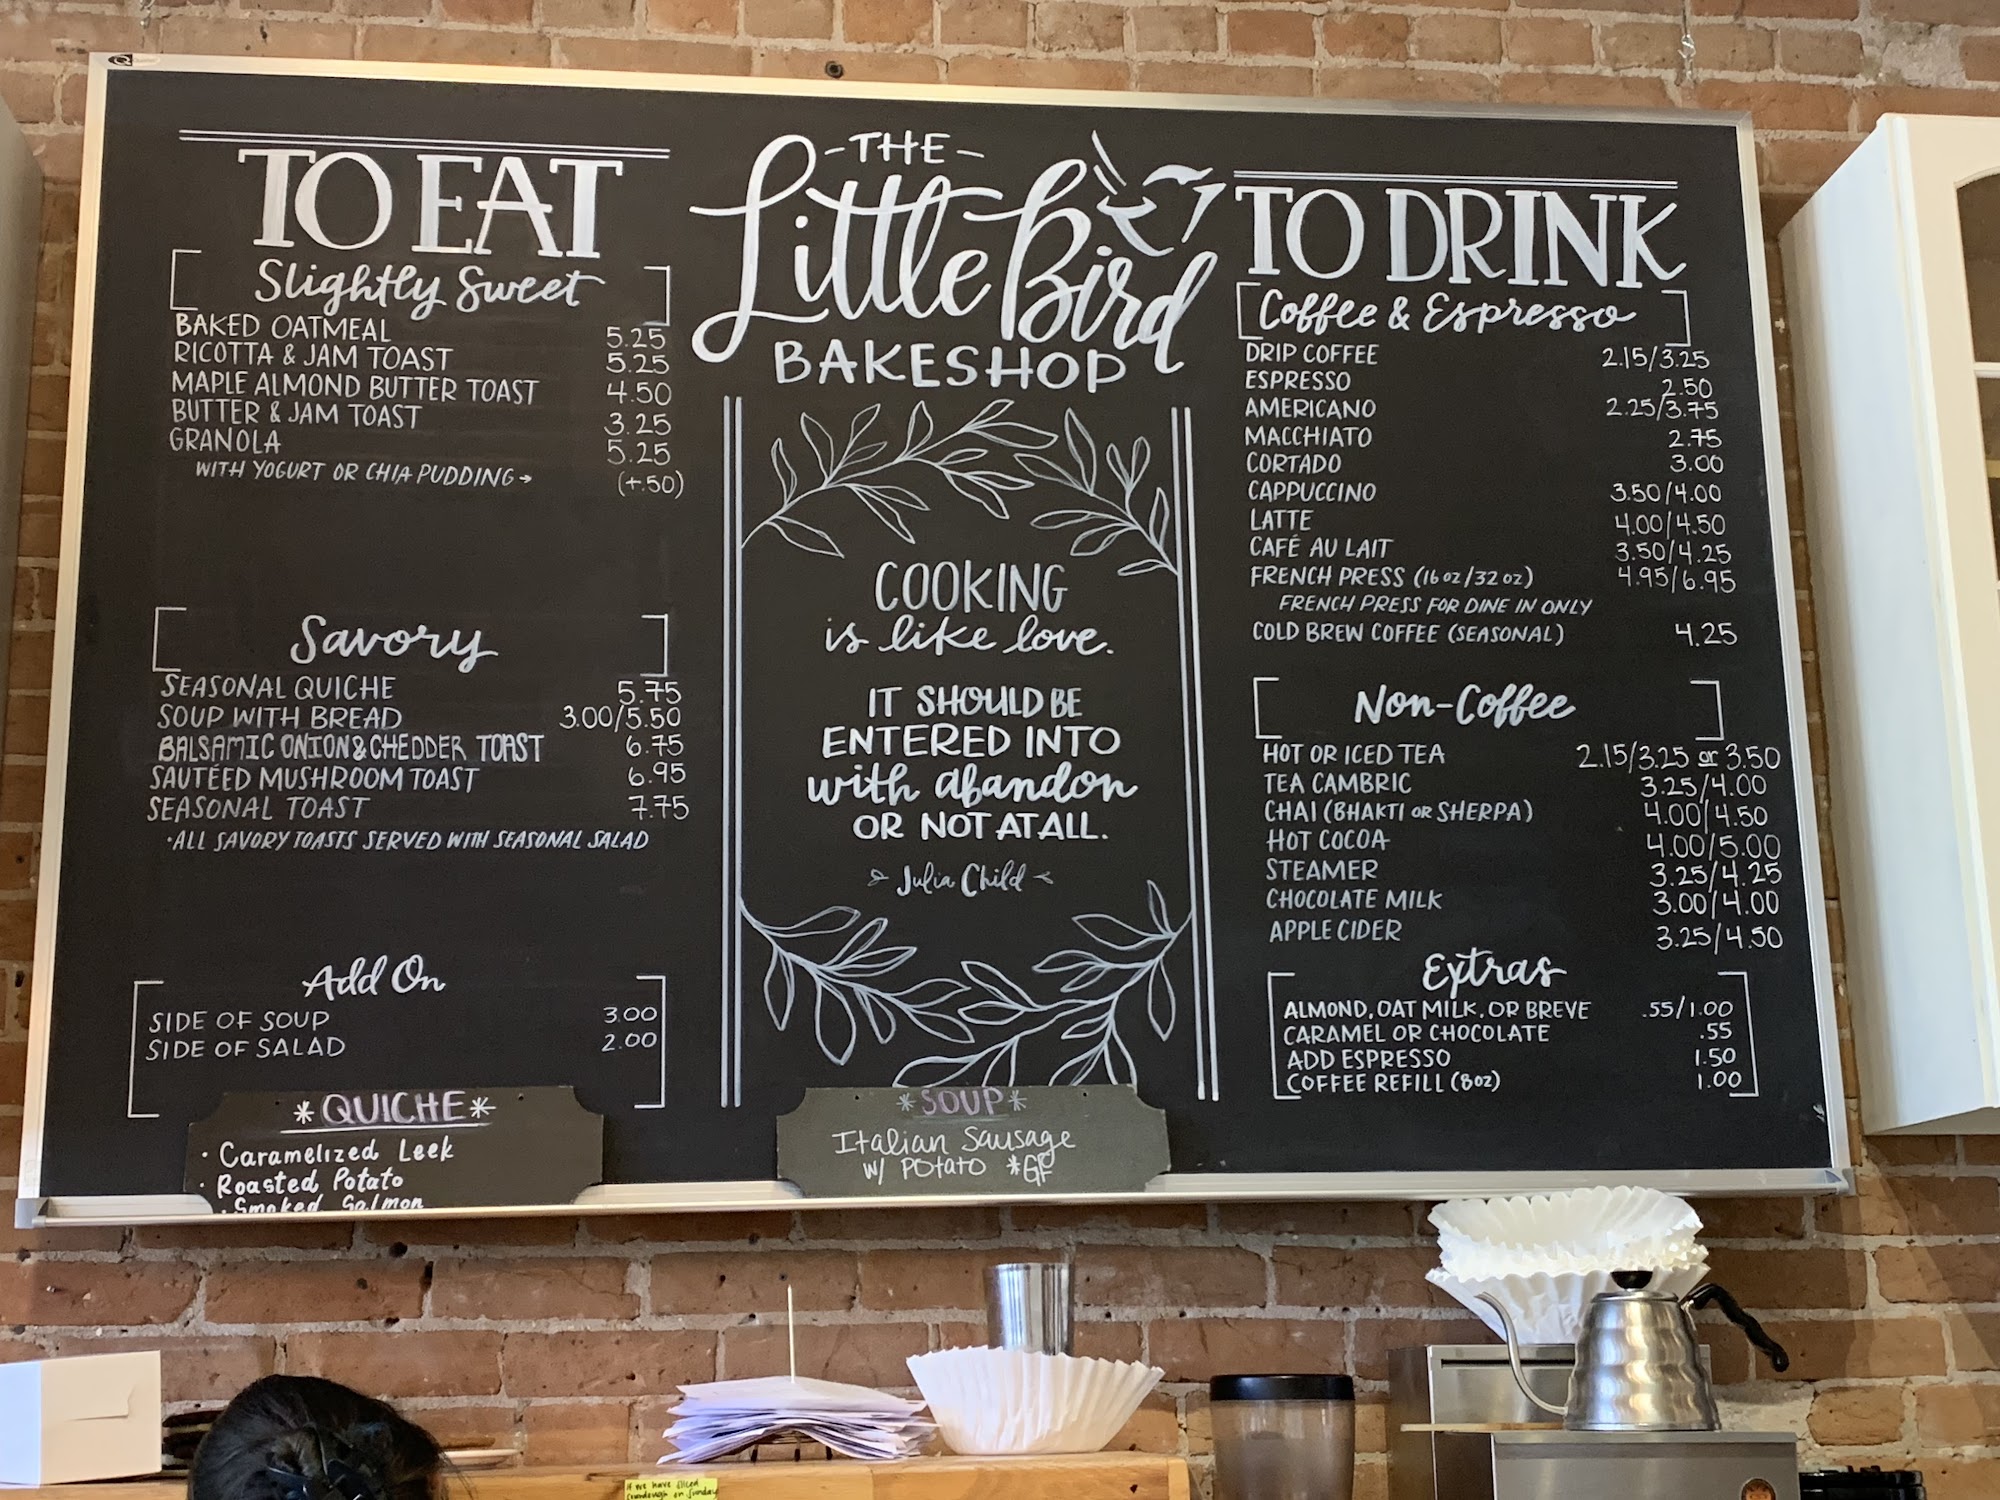 TO EAT
Slightly Sweet
BAKED OATMEAL 5.25
RICOTTA & JAM TOAST 5.25
MAPLE ALMOND BUTTER TOAST 4.50
BUTTER & JAM TOAST 3.25
GRANOLA 5.25
WITH YOGURT OR CHIA PUDDING → (+.50)
Savory
SEASONAL QUICHE 5.75
SOUP WITH BREAD 3.00/5.50
BALSAMIC ONION & CHEDDER TOAST 6.75
SAUTÉED MUSHROOM TOAST 6.95
SEASONAL TOAST 7.75
·ALL SAVORY TOASTS SERVED WITH SEASONAL SALAD
Add On
SIDE OF SOUP 3.00
SIDE OF SALAD 2.00
*QUICHE*
· Caramelized Leek
· Roasted Potato
· Smoked Salmon
-THE-
Little Bird
BAKESHOP
COOKING
is like love.
IT SHOULD BE
ENTERED INTO
with abandon
OR NOT AT ALL.
Julia Child
*SOUP*
Italian Sausage
w/ Potato *GF
TO DRINK
Coffee & Espresso
DRIP COFFEE 2.15/3.25
ESPRESSO 2.50
AMERICANO 2.25/3.75
MACCHIATO 2.75
CORTADO 3.00
CAPPUCCINO 3.50/4.00
LATTE 4.00/4.50
CAFÉ AU LAIT 3.50/4.25
FRENCH PRESS (16 oz/32 oz) 4.95/6.95
FRENCH PRESS FOR DINE IN ONLY
COLD BREW COFFEE (SEASONAL) 4.25
Non-Coffee
HOT OR ICED TEA 2.15/3.25 or 3.50
TEA CAMBRIC 3.25/4.00
CHAI (BHAKTI OR SHERPA) 4.00/4.50
HOT COCOA 4.00/5.00
STEAMER 3.25/4.25
CHOCOLATE MILK 3.00/4.00
APPLE CIDER 3.25/4.50
Extras
ALMOND, OAT MILK, OR BREVE .55/1.00
CARAMEL OR CHOCOLATE .55
ADD ESPRESSO 1.50
COFFEE REFILL (8oz) 1.00
if we have sliced
sourdough on Sunday